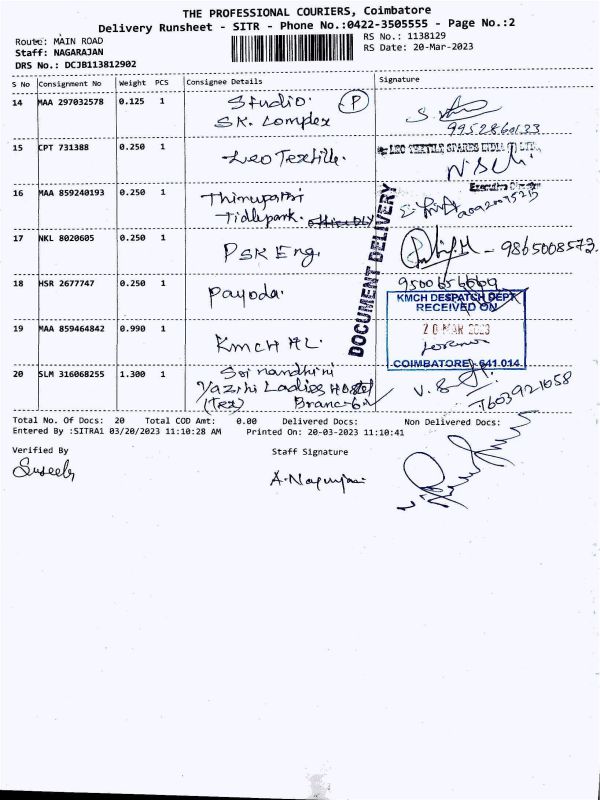 THE PROFESSIONAL COURIERS, Coimbatore
Delivery Runsheet - SITR - Phone No.:0422-3505555 - Page No.:2
Route: MAIN ROAD
Staff: NAGARAJAN
DRS No.: DCJB113812902
RS No.: 1138129
RS Date: 20-Mar-2023
S No Consignment No Weight PCS Consignee Details Signature
14 MAA 297032578 0.125 1 Studio. P
SK. Complex
15 CPT 731388 0.250 1 Leo Textile.
LEO TEXTILE SPARES INDIA (P) LTD.,
16 MAA 859240193 0.250 1 Thirupathi
Tidlepark.
17 NKL 8020605 0.250 1 PSK Eng. - 9865008573.
18 HSR 2677747 0.250 1 Payoda.
DOCUMENT DELIVERY
KMCH DESPATCH DEPT
RECEIVED ON
20 MAR 2023
COIMBATORE - 641 014.
19 MAA 859464842 0.990 1 KMCH HL.
20 SLM 316068255 1.300 1 Sri nandhini
Yazhi Ladies Hostel
(Tex)
7603921058
Total No. Of Docs: 20 Total COD Amt: 0.00 Delivered Docs: Non Delivered Docs:
Entered By :SITRA1 03/20/2023 11:10:28 AM Printed On: 20-03-2023 11:10:41
Verified By
Staff Signature
Suseela
A. Nagarajan